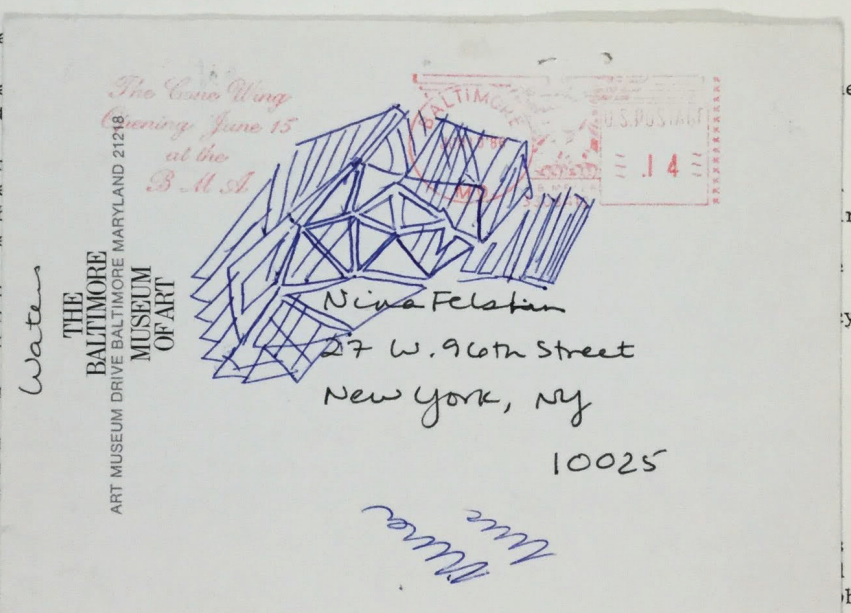 The Cone Wing
Opening June 15
at the
B M A
BALTIMORE
MD
U.S. POSTAGE
.14
Waters
THE
BALTIMORE
MUSEUM
OF ART
ART MUSEUM DRIVE BALTIMORE MARYLAND 21218
Nina Felshin
27 W. 96th Street
New York, NY
10025